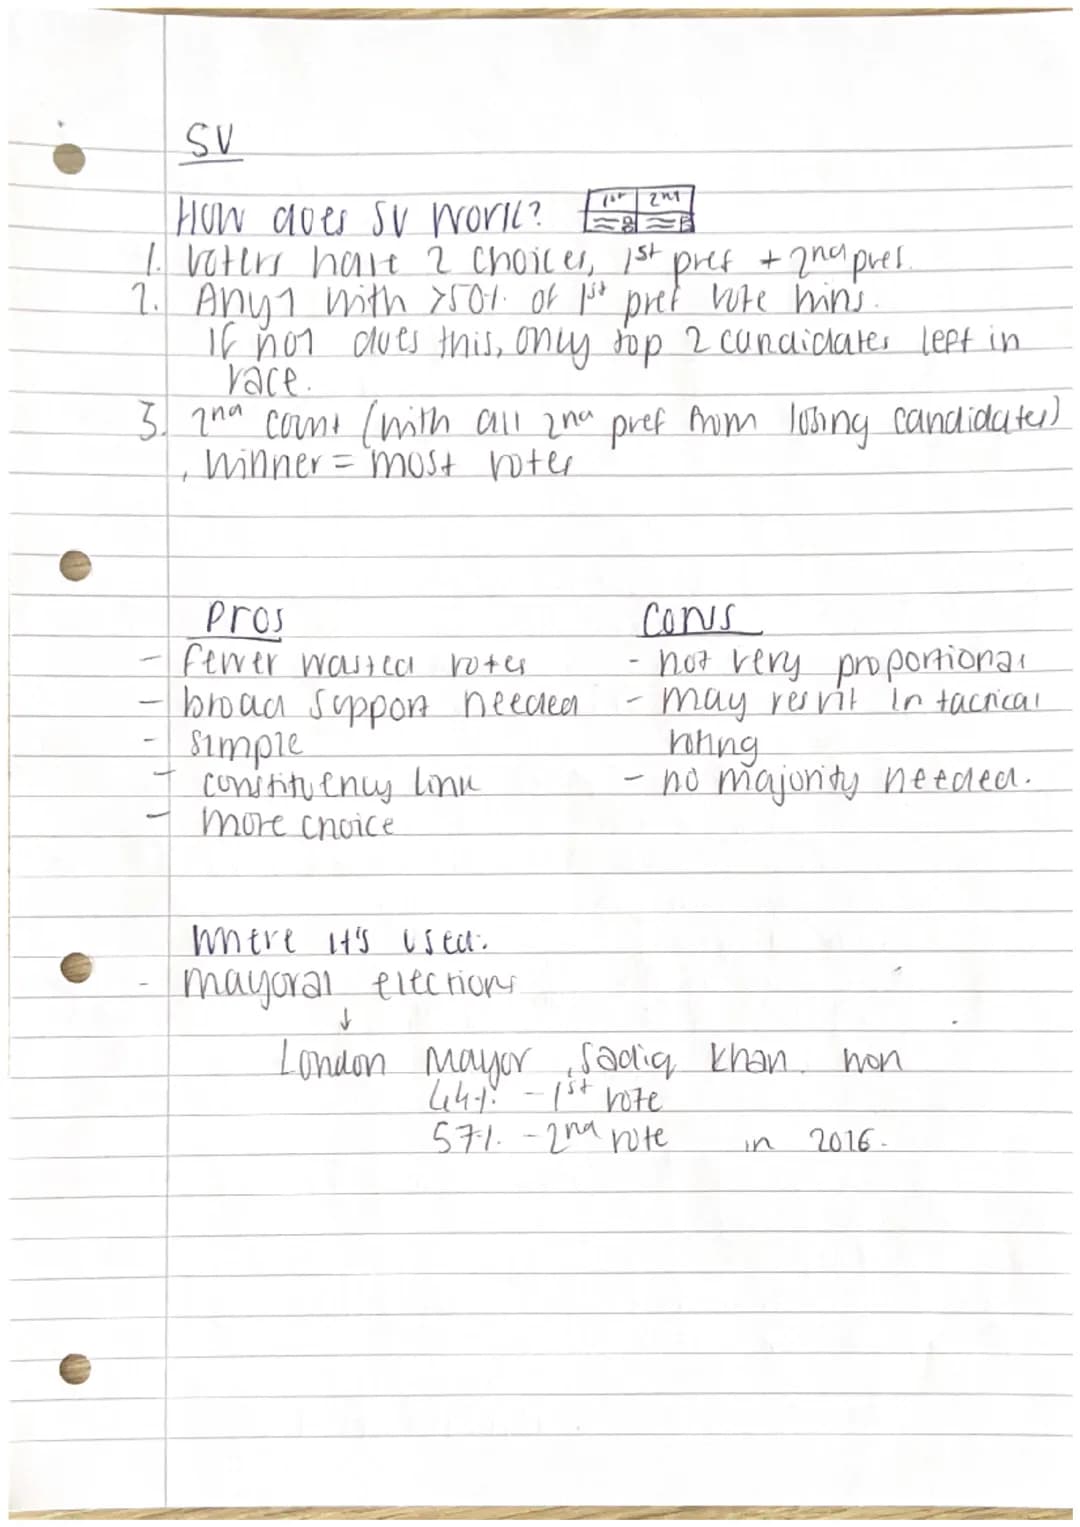 SV
How does SV work? 1st 2nd
1. Voters have 2 choices, 1st pref + 2nd pref.
2. Any1 with >50% of 1st pref vote wins.
If no1 does this, only top 2 candidates left in
race.
3. 2nd count (with all 2nd pref from losing candidates)
, winner = most votes
Pros Cons
- fewer wasted votes - not very proportional
- broad support needed - may result in tactical
- simple voting
- constituency link - no majority needed.
- more choice
Where it's used:
- mayoral elections
↓
London Mayor, Sadiq Khan won
44% - 1st vote
57% - 2nd vote in 2016.